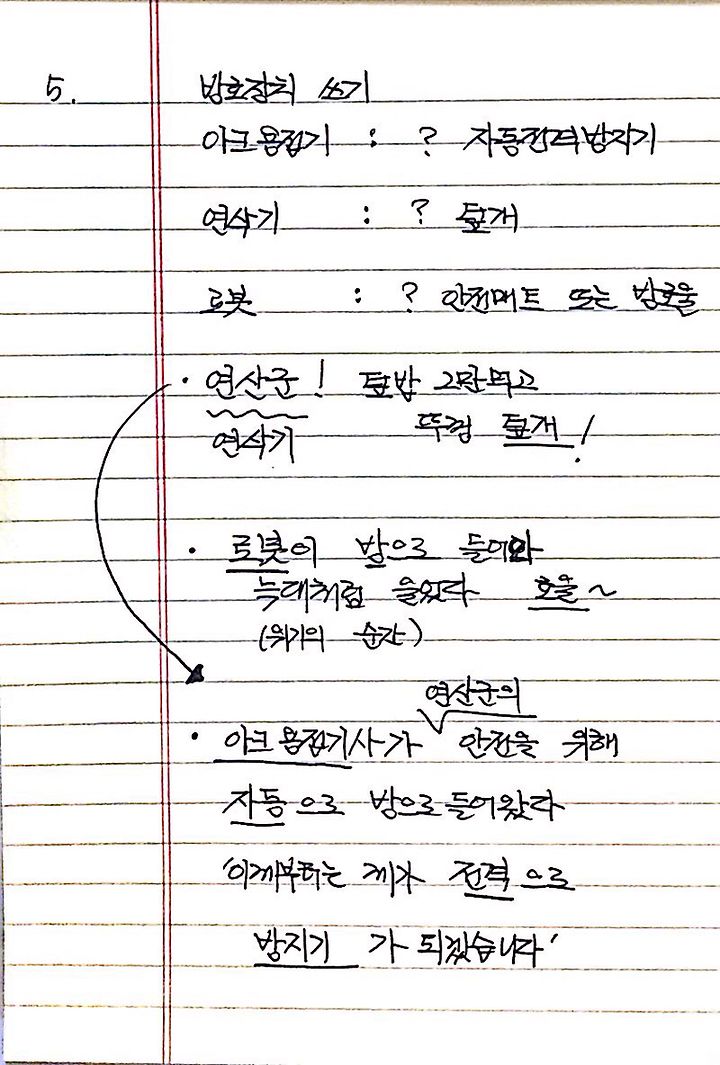 5. 방호장치 쓰기
아크용접기 : ? 자동전격방지기
연삭기 : ? 덮개
로봇 : ? 안전매트 또는 방호울
· 연산군! 덮밥 그만먹고
연삭기 뚜껑 덮개!
· 로봇이 방으로 들어와
늑대처럼 울었다 호울~
(위기의 순간)
연산군의
· 아크용접기사가 안전을 위해
자동으로 방으로 들어왔다
'이제부터는 제가 전격으로
방지기가 되겠습니다'